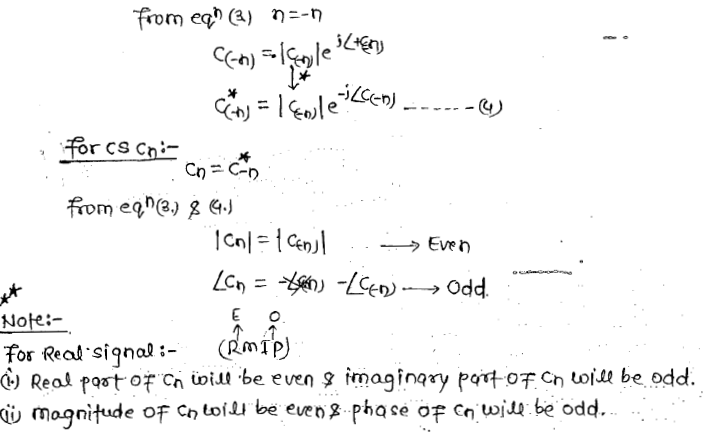 from eqⁿ (3.) n=-n
C(-n) = |C(-n)|e^j∠C(-n)
↓*
C*(-n) = |C(-n)|e^-j∠C(-n) ------- (4)
for CS Cn:-
Cn = C*-n
from eqⁿ (3.) & (4.)
|Cn| = |C(-n)| → Even
∠Cn = -∠C(-n) → Odd.
** Note:-
E O
↑ ↑
for Real signal:- (RmIP)
(i) Real part of Cn will be even & imaginary part of Cn will be odd.
(ii) magnitude of Cn will be even & phase of Cn will be odd.